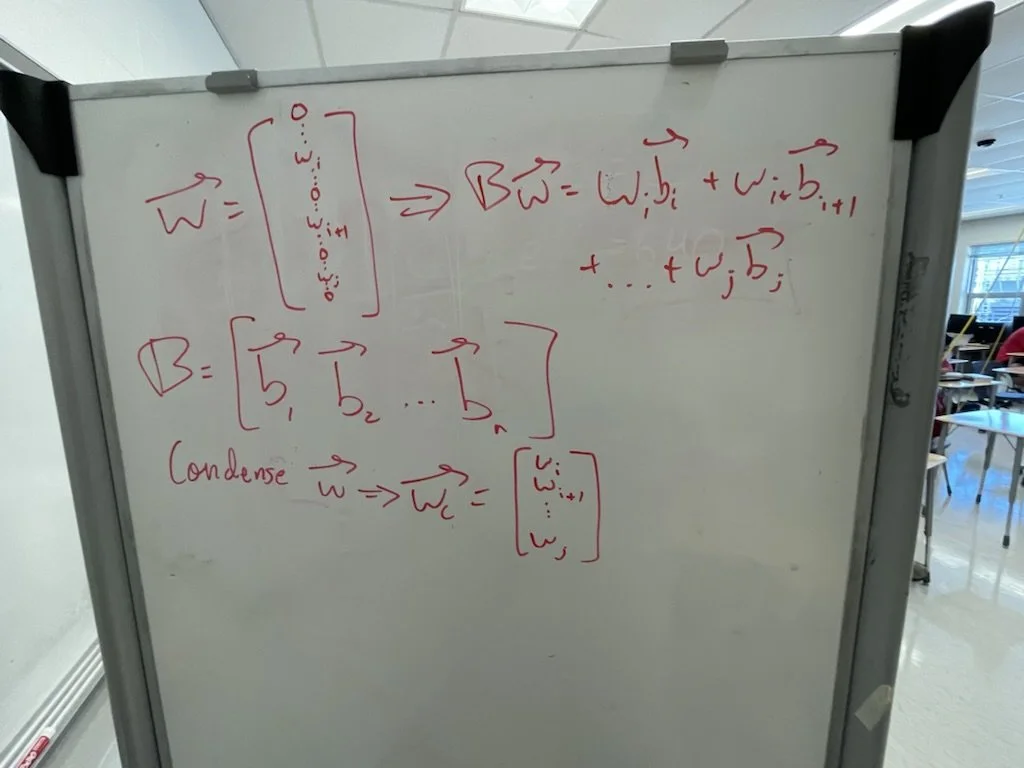 w⃗ = [0 ⋮ wᵢ ⋮ 0 ⋮ wᵢ₊₁ ⋮ 0 ⋮ wⱼ ⋮ 0] ⇒ Bw⃗ = wᵢb⃗ᵢ + wᵢ₊b⃗ᵢ₊₁
+ ... + wⱼb⃗ⱼ
B = [b⃗₁ b⃗₂ ... b⃗ₙ]
Condense w⃗ ⇒ w⃗_c = [wᵢ wᵢ₊₁ ⋮ wⱼ]